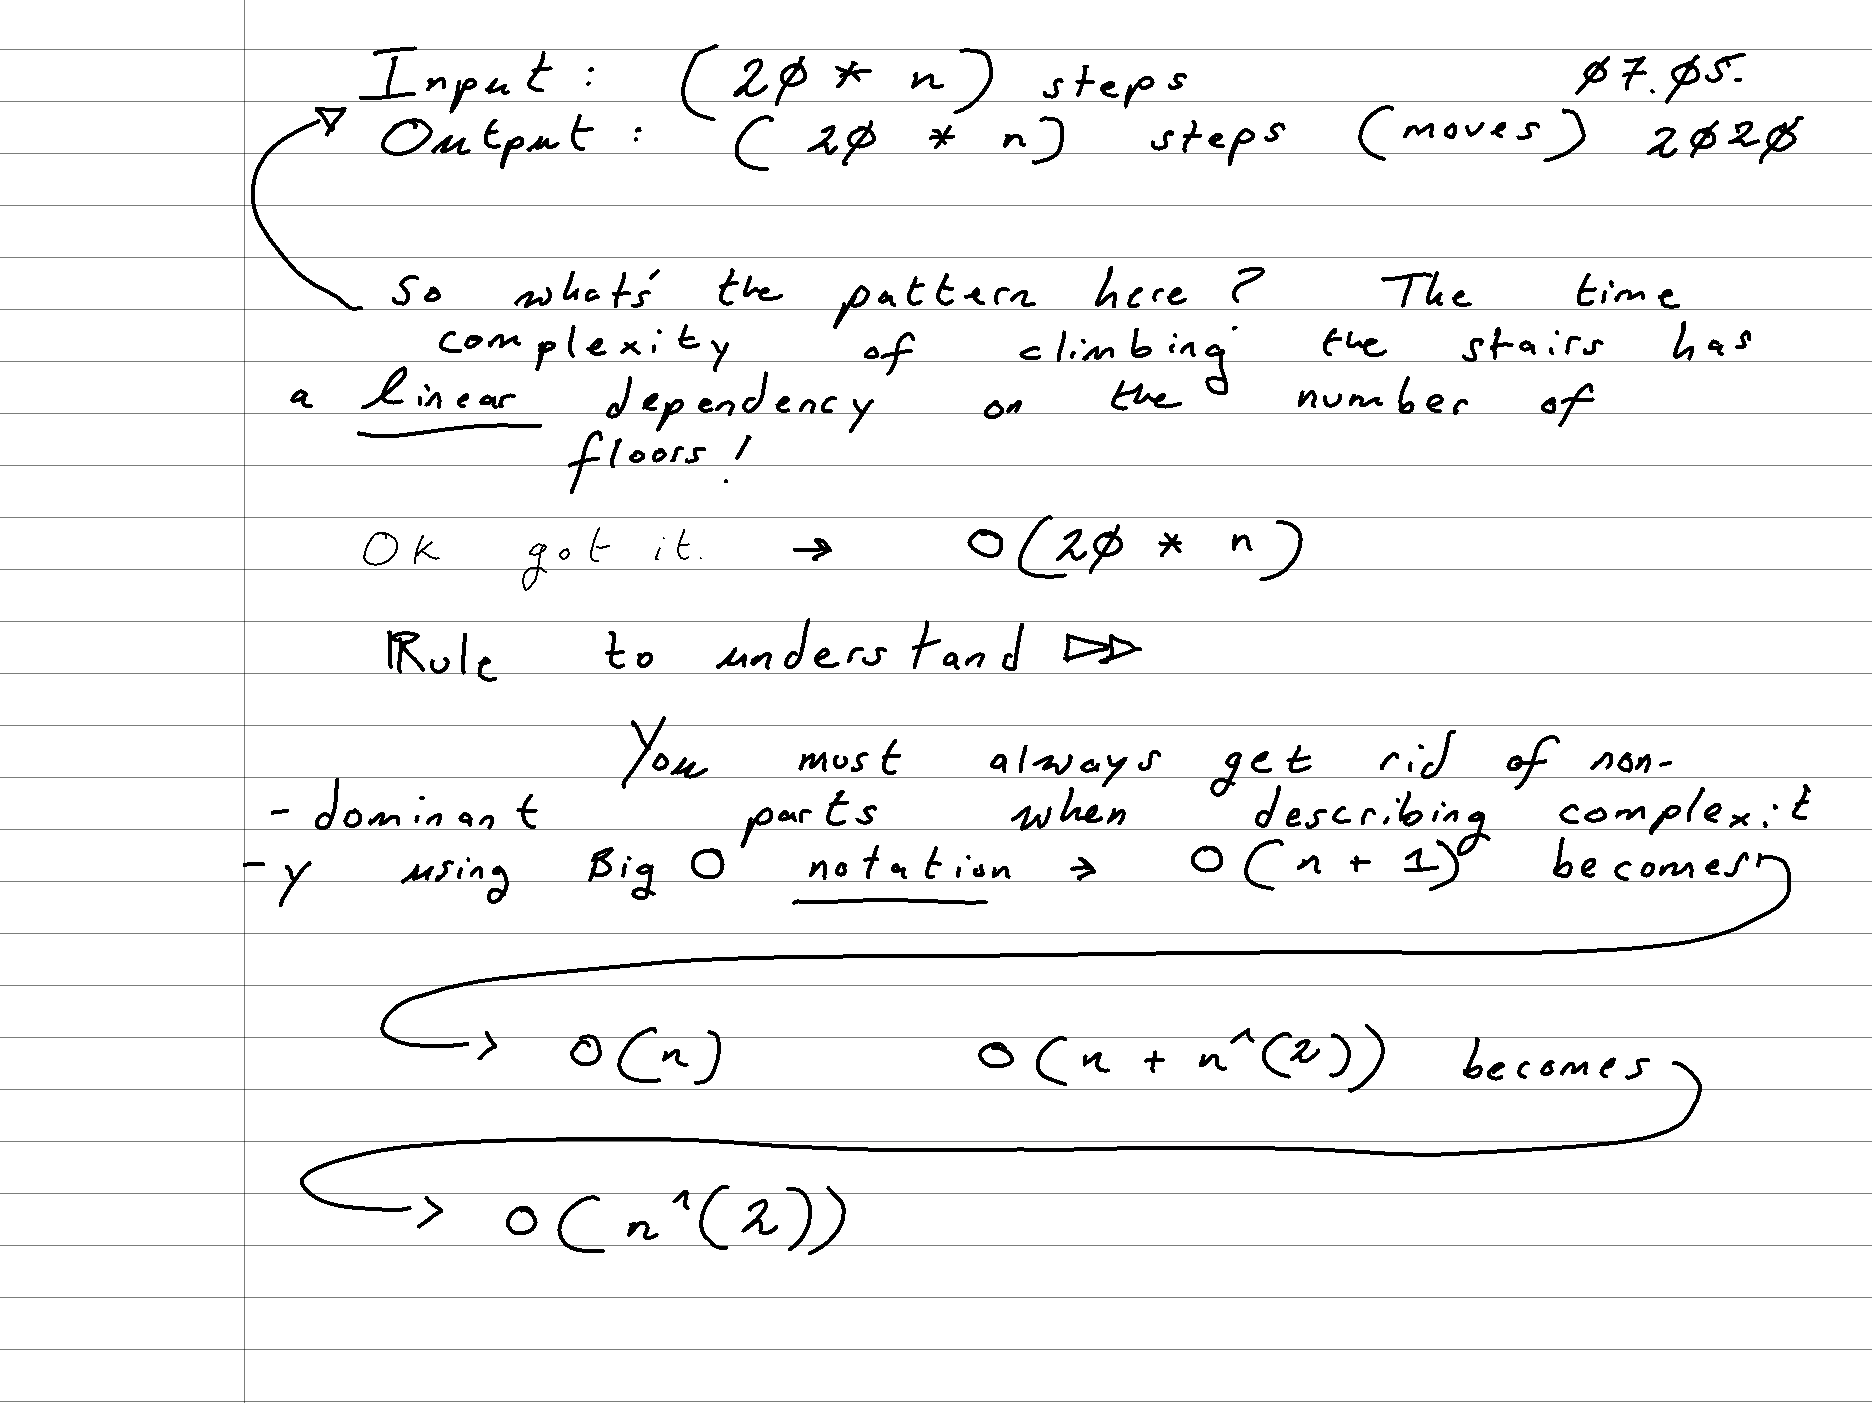 Input : (20 * n) steps 07.05.
Output : (20 * n) steps (moves) 2020
So what's the pattern here? The time
complexity of climbing the stairs has
a linear dependency on the number of
floors!
OK got it. → O(20 * n)
Rule to understand ▷▷
You must always get rid of non-
-dominant parts when describing complexit
-y using Big O notation → O(n + 1) becomes
→ O(n) O(n + n^(2)) becomes
→ O(n^(2))